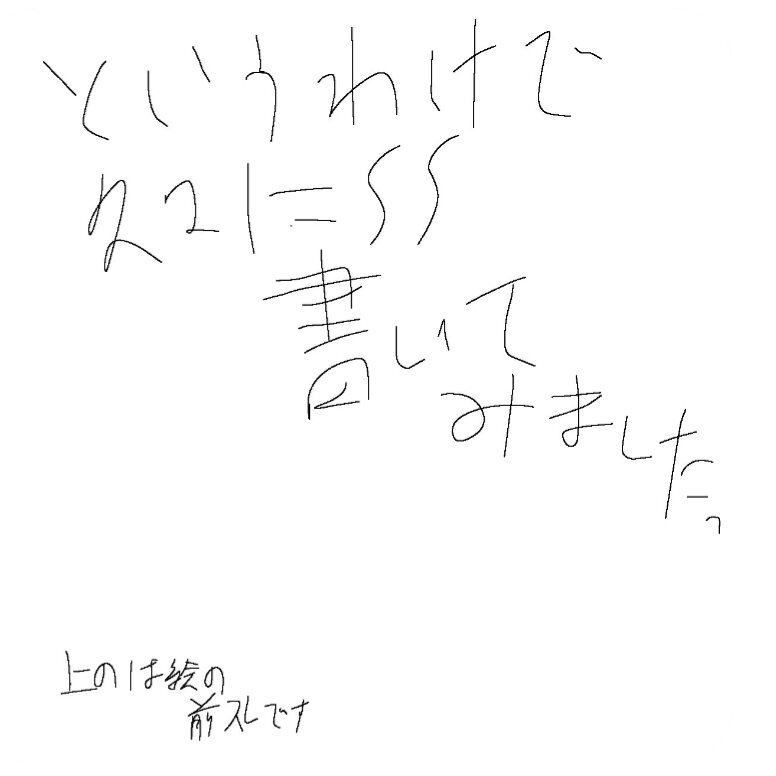 というわけで
久々にSS
書いて
みました。
上のは絵の
前スレです